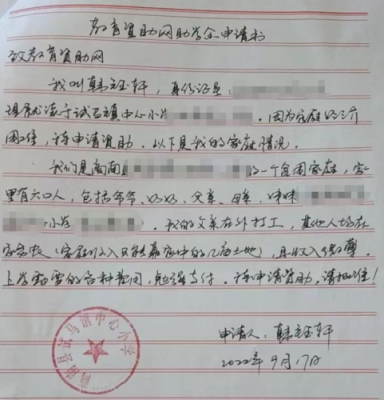 教育资助网助学金申请书
致教育资助网
我叫韩 轩，身份证是：
现就读于试马镇中心小
，因为家庭经济
困难，请申请资助。以下是我的家庭情况。
我们是商南县 的一个贫困家庭，家
里有六口人，包括爷爷、奶奶、父亲、母亲、妹妹
小学 ，我的父亲在外打工，其他人均在
家务农（家庭收入只能靠家中的几亩土地），且收入微薄。
上学需要的各种费用，勉强支付。请申请资助，请批准！
申请人：韩 轩
2022年9月17日
商南县试马镇中心小学